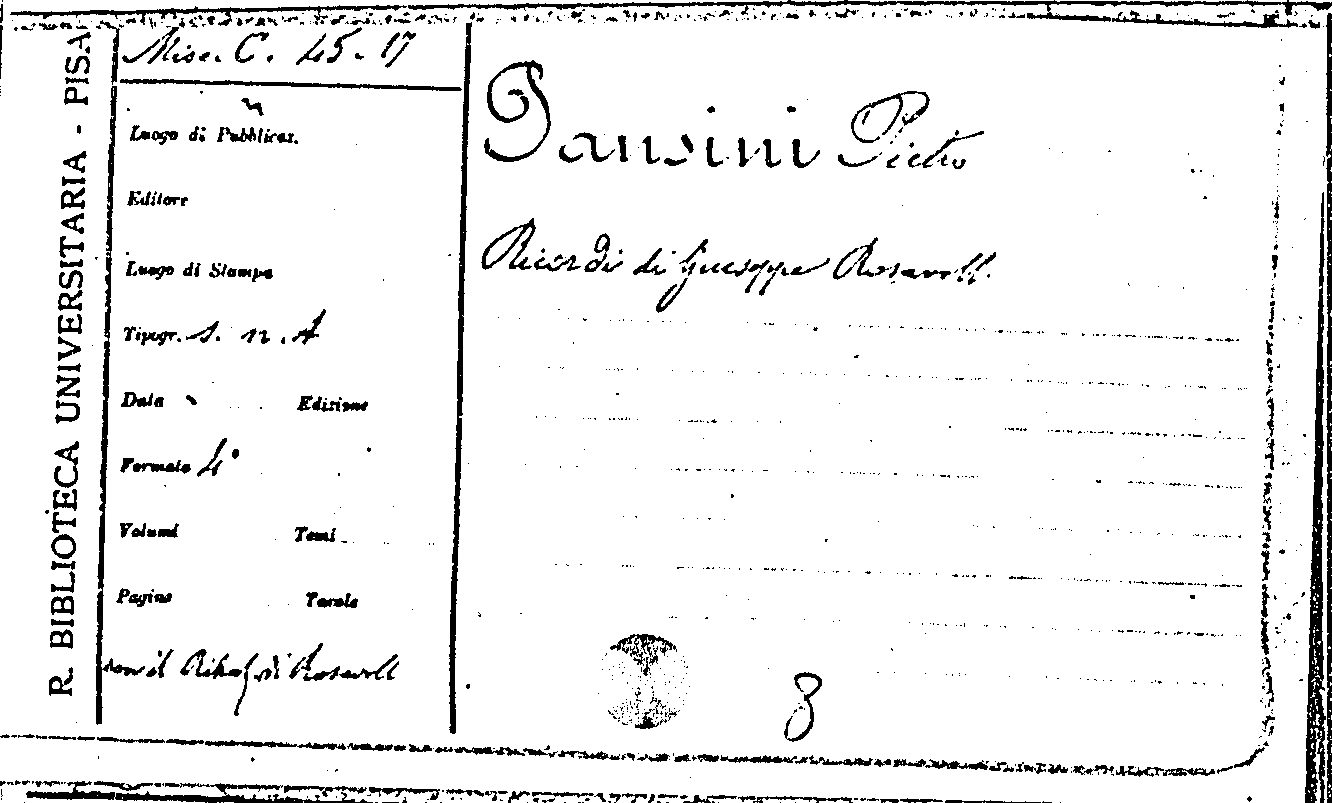 R. BIBLIOTECA UNIVERSITARIA - PISA
Misc. C. 45. 17
Luogo di Pubblicaz.
Editore
Luogo di Stampa
Tipogr. s. n. t
Data Edizione
Formato 4°
Volumi Tomi
Pagine Tavole
con il di Rosaroll
Pansini Pietro
Ricordi di Giuseppe Rosaroll.
8